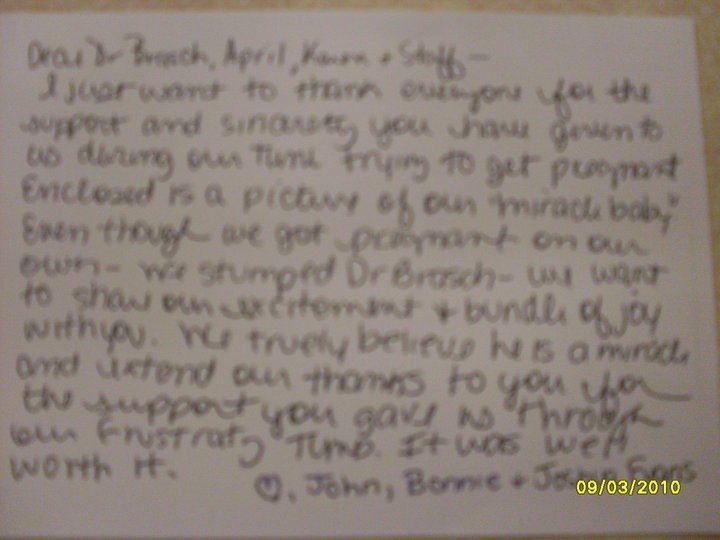 Dear Dr Brosch, April, Karen + Staff —
I just want to thank everyone for the
support and sincerety you have given to
us during our time trying to get pregnant
Enclosed is a picture of our "miracle baby"
Even though we got pregnant on our
own - we stumped Dr Brosch - we want
to share our excitement + bundle of joy
with you. We truely believe he is a miracle
and extend our thanks to you for
the support you gave us through
our frustratg times. It was well
worth it.
♡, John, Bonnie + Evans
09/03/2010